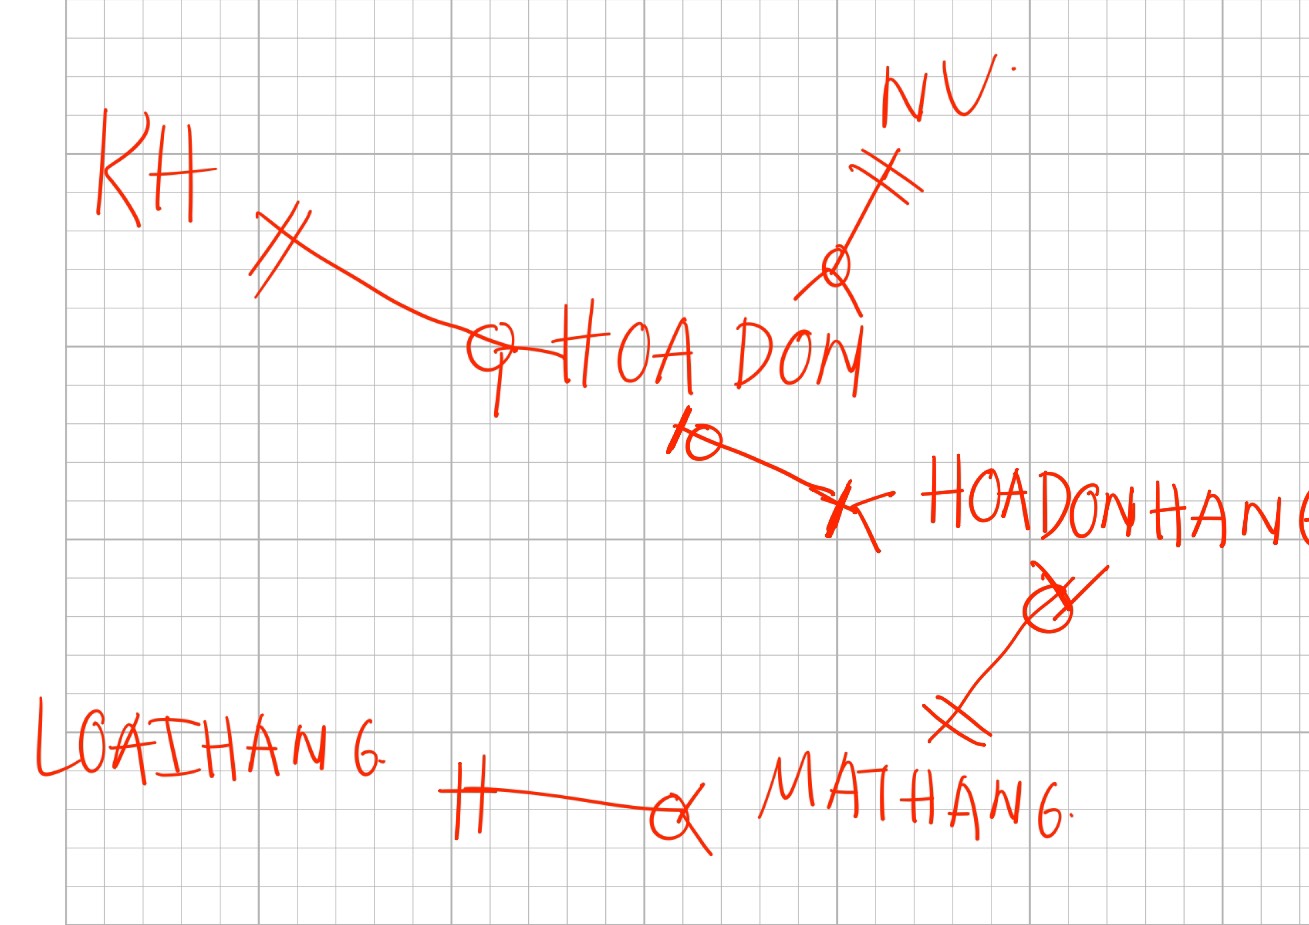 NV.
KH
HOA DON
HOADONHANG
LOAIHANG.
MATHANG.